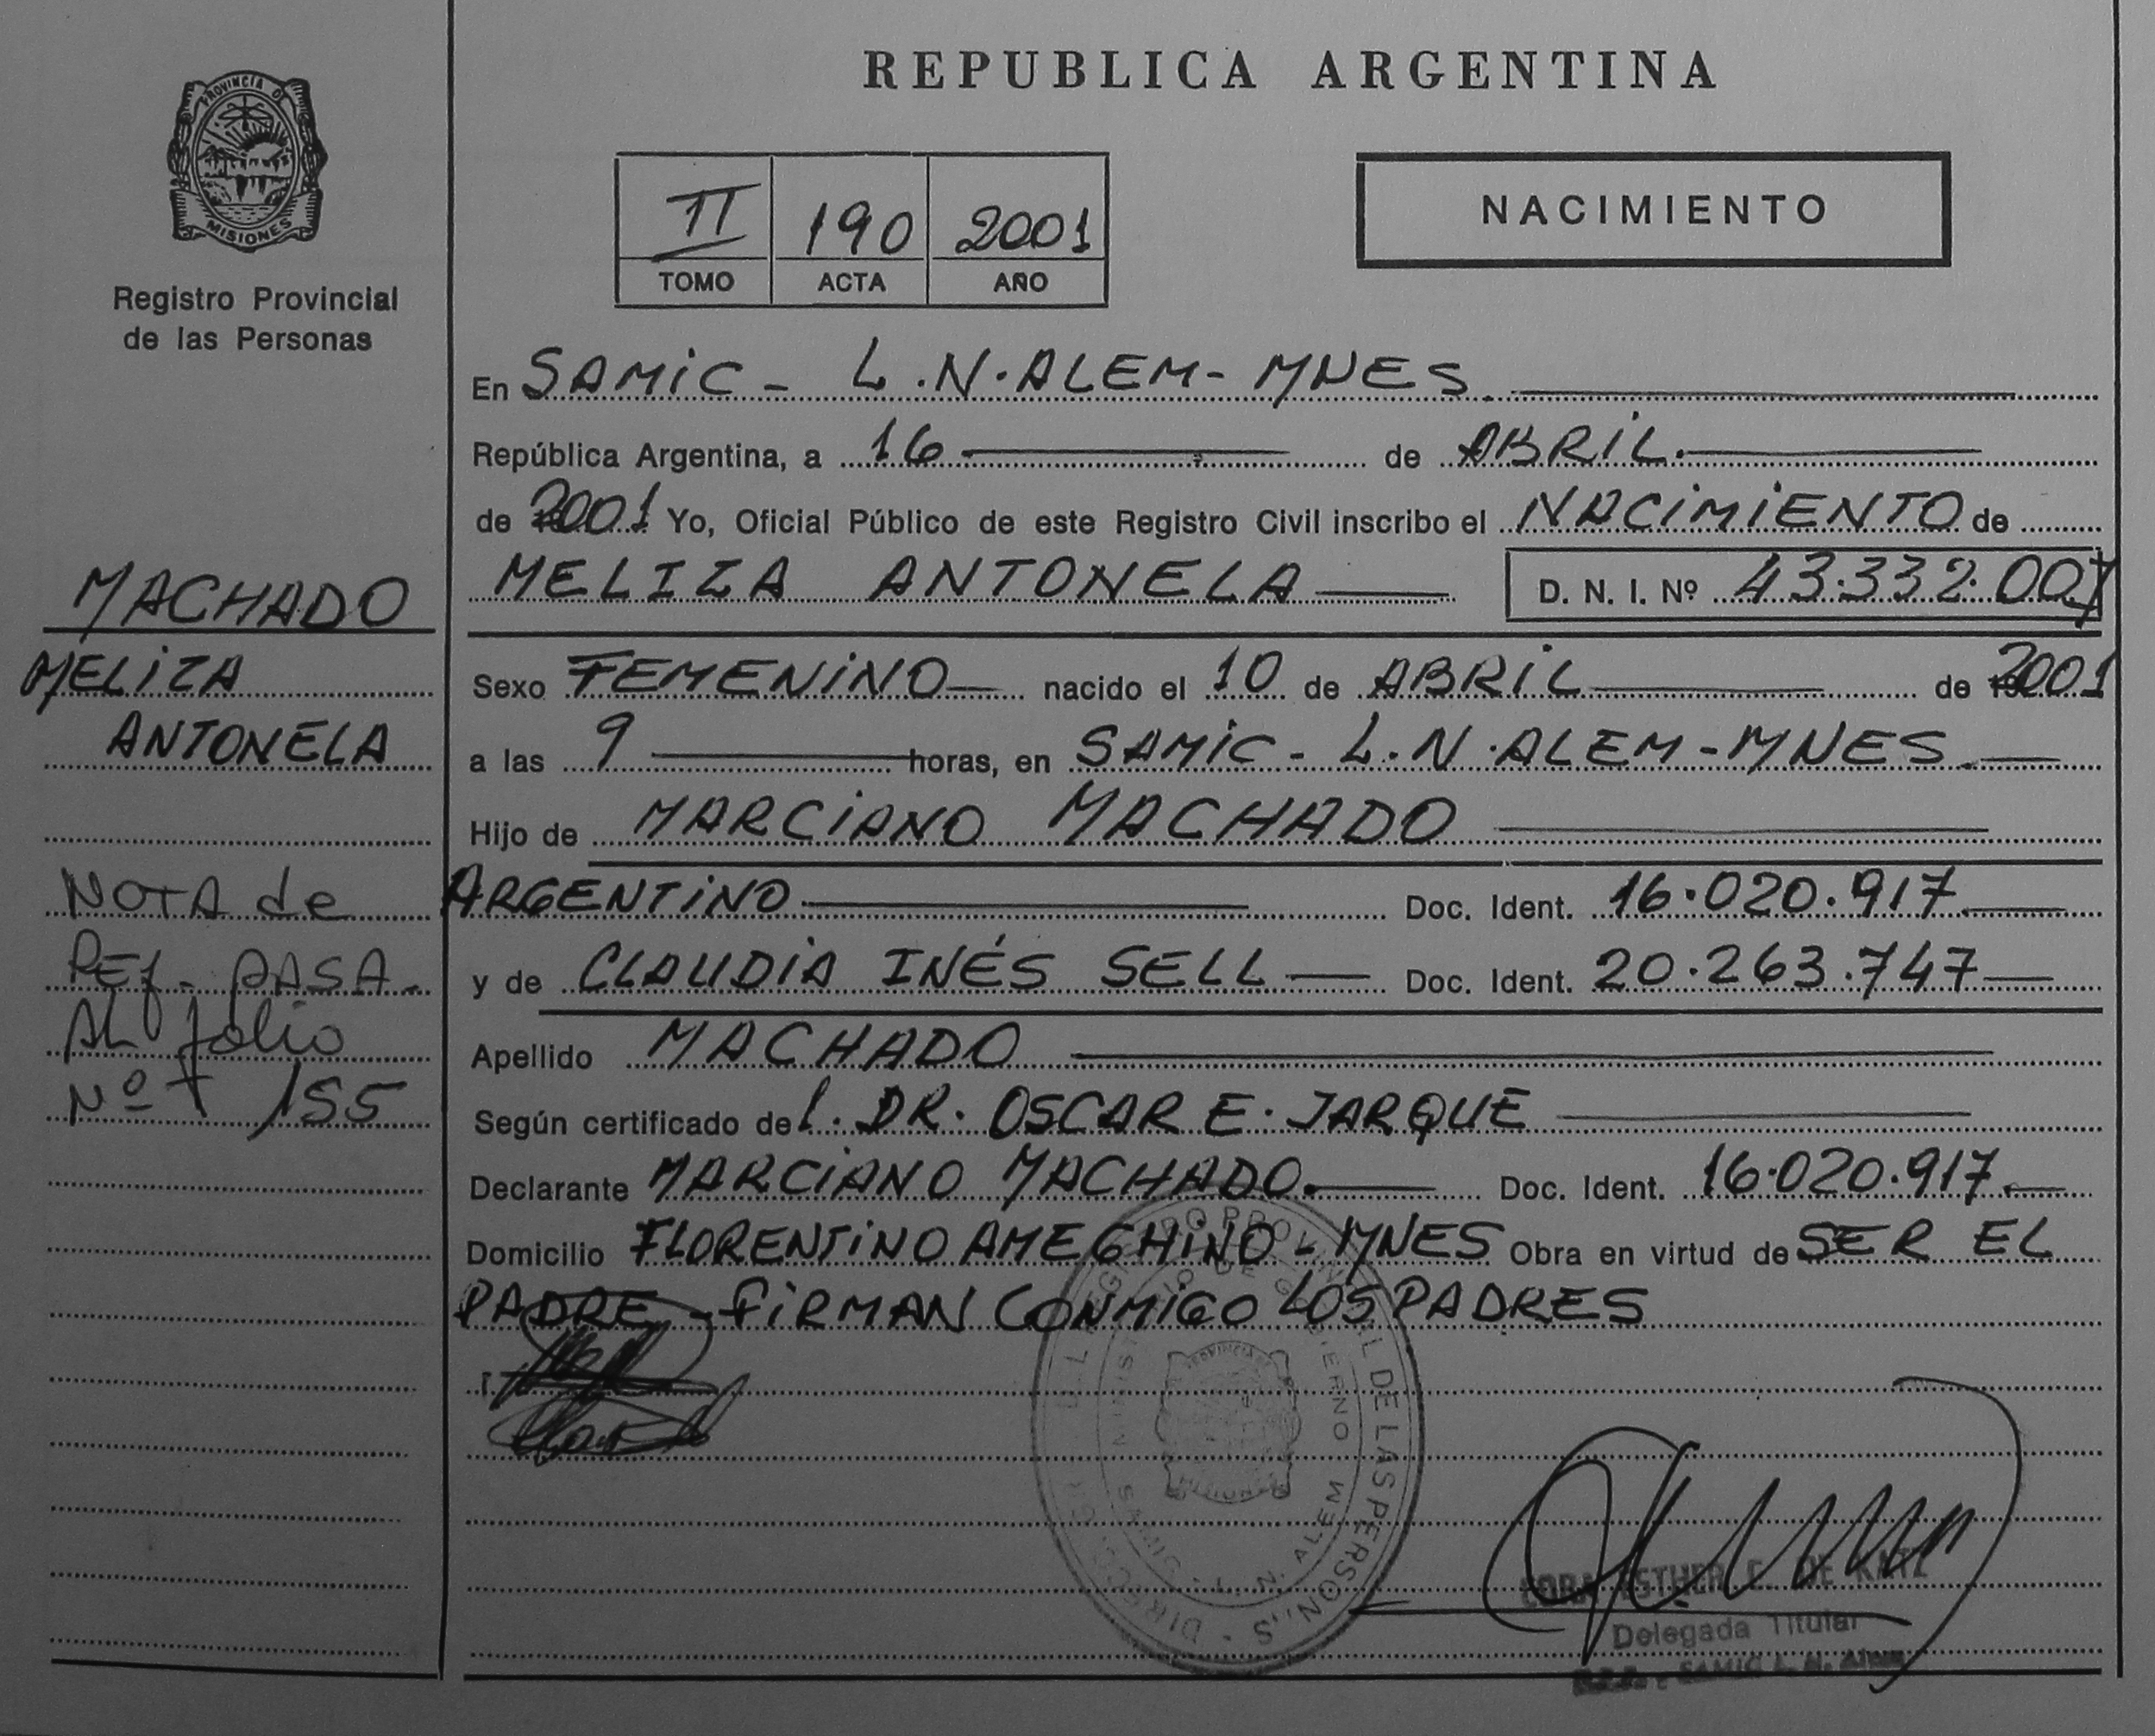 REPUBLICA ARGENTINA
PROVINCIA DE
MISIONES
Registro Provincial
de las Personas
II 190 2001
TOMO ACTA AÑO
NACIMIENTO
En SAMIC - L.N. ALEM - MNES.
República Argentina, a 16 de ABRIL.
de 2001 Yo, Oficial Público de este Registro Civil inscribo el NACIMIENTO de
MELIZA ANTONELA D. N. I. Nº 43.332.007
Sexo FEMENINO nacido el 10 de ABRIL de 2001
a las 9 horas, en SAMIC - L.N. ALEM - MNES.
Hijo de MARCIANO MACHADO
ARGENTINO Doc. Ident. 16.020.917
y de CLAUDIA INÉS SELL Doc. Ident. 20.263.747
Apellido MACHADO
Según certificado del. DR. OSCAR E. JARQUE
Declarante MARCIANO MACHADO. Doc. Ident. 16.020.917.
Domicilio FLORENTINO AMEGHINO - MNES Obra en virtud de SER EL
PADRE - FIRMAN CONMIGO LOS PADRES
MACHADO
MELIZA
ANTONELA
NOTA de
REf. PASA.
AL folio
Nº 155
DE LAS PERSONAS
SAMIC - L. N. ALEM
ESTHER F. DE KATZ
Delegada Titular
SAMIC L. N. Alem